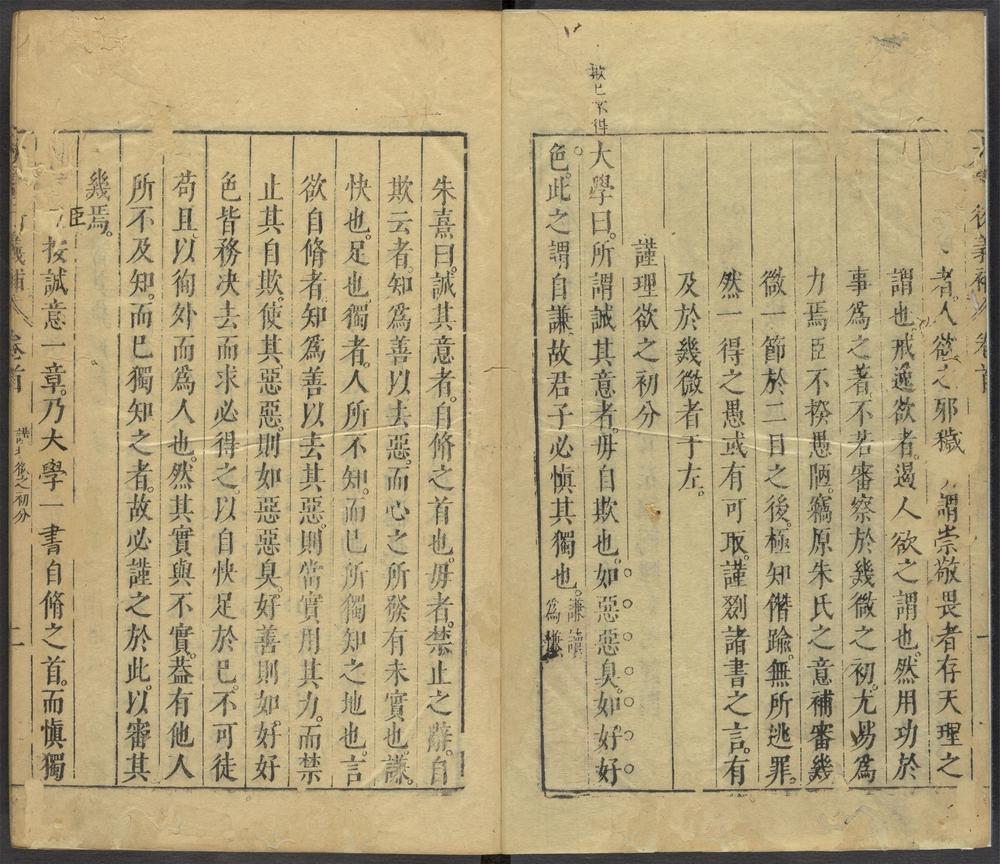 衍義補 卷首
者人欲之邪穢 謂崇敬畏者存天理之
謂也戒逸欲者遏人欲之謂也然用功於
事為之著不若審察於幾微之初尤易為
力焉臣不揆愚陋竊原朱氏之意補審幾
微一節於二目之後極知僭踰無所逃罪
然一得之愚或有可取謹剟諸書之言有
及於幾微者于左
謹理欲之初分
大學曰所謂誠其意者毋自欺也如惡惡臭如好好
色此之謂自謙故君子必慎其獨也 謙讀為慊
朱熹曰誠其意者自脩之首也毋者禁止之辭自
欺云者知為善以去惡而心之所發有未實也謙
快也足也獨者人所不知而己所獨知之地也言
欲自脩者知為善以去其惡則當實用其力而禁
止其自欺使其惡惡則如惡惡臭好善則如好好
色皆務决去而求必得之以自快足於己不可徒
苟且以徇外而為人也然其實與不實葢有他人
所不及知而己獨知之者故必謹之於此以審其
幾焉
臣按誠意一章乃大學一書自脩之首而慎獨
義補 卷首 之初分 二